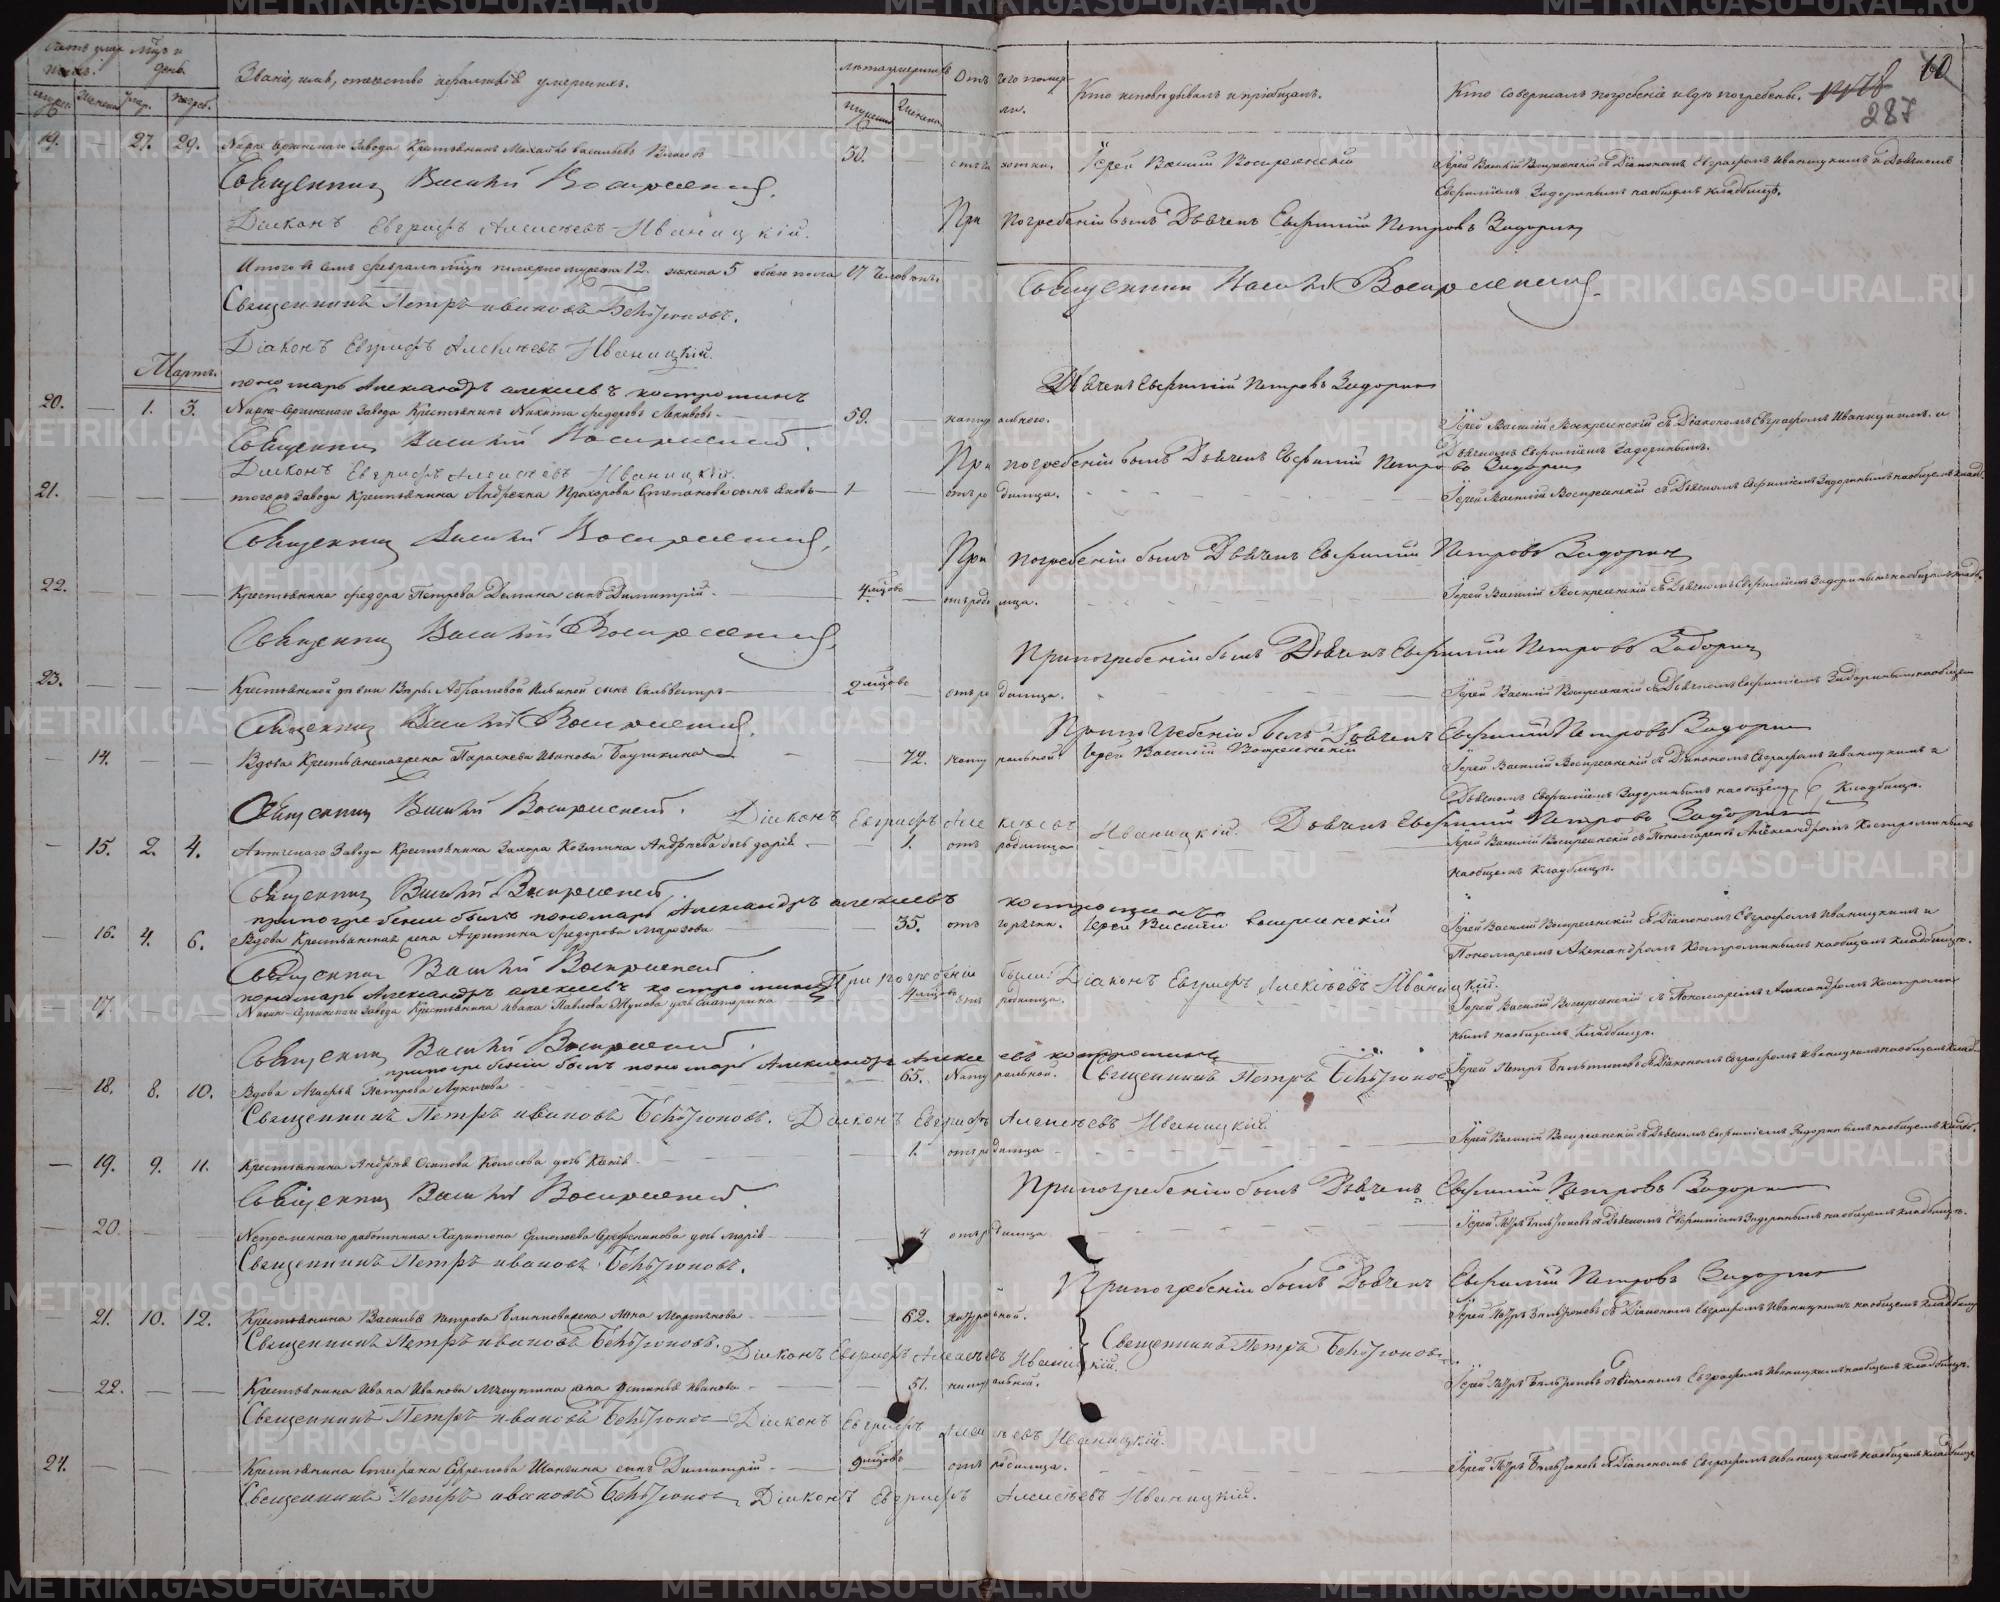 Счетъ умер- Мѣсяцъ и
шихъ. день.
Званіе, имя, отечество и фамилія умершихъ.
Лѣта умершихъ
Отъ чего помер-
ли.
Кто исповѣдывалъ и пріобщалъ.
Кто совершалъ погребеніе и гдѣ погребены.
1178 10
287
мужеск. женска умер. погреб.
мужеска женска
19. — 27. 29. Нязе-Сергинскаго Завода Крестьянинъ Михайло Васильевъ 50. отъ чахотки. Іерей Василій Воскресенскій
Іерей Василій Воскресенскій съ Діакономъ Евграфомъ Иваницкимъ и Дьячкомъ
Евфиміемъ Задоринымъ на общемъ кладбищѣ.
Священникъ Василій Воскресенскій.
Діаконъ Евграфъ Алексѣевъ Иваницкій.
При погребеніи былъ Дьячекъ Евфимій Петровъ Задоринъ
Итого въ семъ февралѣ мѣсяцѣ померло мужеска 12. женска 5 обоего пола 17 человѣкъ.
Священникъ Василій Воскресенскій.
Священникъ Петръ Ивановъ Бельтюковъ.
Діаконъ Евграфъ Алексѣевъ Иваницкій.
Мартъ.
пономарь Александръ Алексиевъ Костроминъ
Дьячекъ Евфимій Петровъ Задоринъ
20. — 1. 3. Нязе-Сергинскаго Завода Крестьянинъ Никита Федоровъ 59. — натуральною.
Іерей Василій Воскресенскій съ Діакономъ Евграфомъ Иваницкимъ и
Дьячкомъ Евфиміемъ Задоринымъ.
Священникъ Василій Воскресенскій.
Діаконъ Евграфъ Алексѣевъ Иваницкій.
При погребеніи былъ Дьячекъ Евфимій Петровъ Задоринъ
21. — — — тогожъ Завода Крестьянина Андреяна Прохорова Степанова сынъ Яковъ — 1 — отъ родимца.
Іерей Василій Воскресенскій съ Дьячкомъ Евфиміемъ Задоринымъ на общемъ кладб.
Священникъ Василій Воскресенскій.
При погребеніи былъ Дьячекъ Евфимій Петровъ Задоринъ
22. — — — Крестьянина Федора Петрова Демина сынъ Димитрій — 4 мѣсяцовъ — отъ родимца.
Іерей Василій Воскресенскій съ Дьячкомъ Евфиміемъ Задоринымъ на общемъ кладб.
Священникъ Василій Воскресенскій.
При погребеніи былъ Дьячекъ Евфимій Петровъ Задоринъ
23. — — — Крестьянской дѣвки Вѣры Абрамовой Ильиной сынъ Сильвестръ — 2 мѣсяцовъ — отъ родимца.
Іерей Василій Воскресенскій съ Дьячкомъ Евфиміемъ Задоринымъ на общем
Священникъ Василій Воскресенскій.
При погребеніи былъ Дьячекъ Евфимій Петровъ Задоринъ
— 14. — — Вдова Крестьянская жена Параскева Иванова — 72. натуральной Іерей Василій Воскресенскій
Іерей Василій Воскресенскій съ Діакономъ Евграфомъ Иваницкимъ и
Дьячкомъ Евфиміемъ Задоринымъ на общемъ Кладбищѣ.
Священникъ Василій Воскресенскій. Діаконъ Евграфъ Алексѣевъ Иваницкій. Дьячекъ Евфимій Петровъ Задоринъ
— 15. 2. 4. Атигскаго Завода Крестьянина Захара Козмина Андреева дочь Дарія — 1. отъ родимца
Іерей Василій Воскресенскій съ Пономаремъ Александромъ Костроминымъ
на общемъ Кладбищѣ.
Священникъ Василій Воскресенскій.
при погребении былъ пономарь Александръ алексиевъ костроминъ
— 16. 4. 6. Вдова Крестьянская жена Агрипина Федорова Морозова — 35. отъ горячки. Іерей Василій Воскресенскій
Іерей Василій Воскресенскій съ Діакономъ Евграфомъ Иваницкимъ и
Пономаремъ Александромъ Костроминымъ на общемъ кладбищѣ.
Священникъ Василій Воскресенскій.
При погребеніи были: Діаконъ Евграфъ Алексѣевъ Иваницкій.
пономарь Александръ алексиевъ костроминъ
— 17. — — Нязе-Сергинскаго Завода Крестьянина Ивана Павлова дочь Екатерина — 4 мѣсяцовъ отъ родимца.
Іерей Василій Воскресенскій съ Пономаремъ Александромъ Костроми-
нымъ на общемъ Кладбищѣ.
Священникъ Василій Воскресенскій.
при погребении былъ пономарь Александръ Алексиевъ костроминъ
— 18. 8. 10. Вдова Агафья Петрова — 65. Натуральной. Священникъ Петръ Бельтюковъ
Іерей Петръ Бельтюковъ съ Діакономъ Евграфомъ Иваницкимъ на общемъ Кладб.
Священникъ Петръ Ивановъ Бельтюковъ. Діаконъ Евграфъ Алексѣевъ Иваницкій.
— 19. 9. 11. Крестьянина Андрея Осипова Колосова дочь — 1. отъ родимца
Іерей Василій Воскресенскій съ Дьячкомъ Евфиміемъ Задоринымъ на общемъ кладб.
Священникъ Василій Воскресенскій
При погребеніи былъ Дьячекъ Евфимій Петровъ Задоринъ
— 20. — — Непременнаго работника Харитона дочь Марія — 4 отъ родимца
Іерей Петръ Бельтюковъ съ Дьячкомъ Евфиміемъ Задоринымъ на общемъ кладбищѣ.
Священникъ Петръ Ивановъ Бельтюковъ.
При погребеніи былъ Дьячекъ Евфимій Петровъ Задоринъ
— 21. 10. 12. Крестьянина Василья Петрова жена Анна Мартынова — 62. натуральной.
Іерей Петръ Бельтюковъ съ Діакономъ Евграфомъ Иваницкимъ на общемъ кладбищѣ
Священникъ Петръ Ивановъ Бельтюковъ. Діаконъ Евграфъ Алексѣевъ Иваницкій.
Священникъ Петръ Бельтюковъ.
— 22. — — Крестьянина Ивана Иванова жена Устинья Иванова — 51. натуральной.
Іерей Петръ Бельтюковъ съ Діакономъ Евграфомъ Иваницкимъ на общемъ кладбищѣ.
Священникъ Петръ Ивановъ Бельтюковъ Діаконъ Евграфъ Алексѣевъ Иваницкій.
24. — — — Крестьянина Стефана Ефремова сынъ Димитрій — 9 мѣсяцовъ отъ родимца.
Іерей Петръ Бельтюковъ съ Діакономъ Евграфомъ Иваницкимъ на общемъ кладбищѣ
Священникъ Петръ Ивановъ Бельтюковъ Діаконъ Евграфъ Алексѣевъ Иваницкій.
METRIKI.GASO-URAL.RU